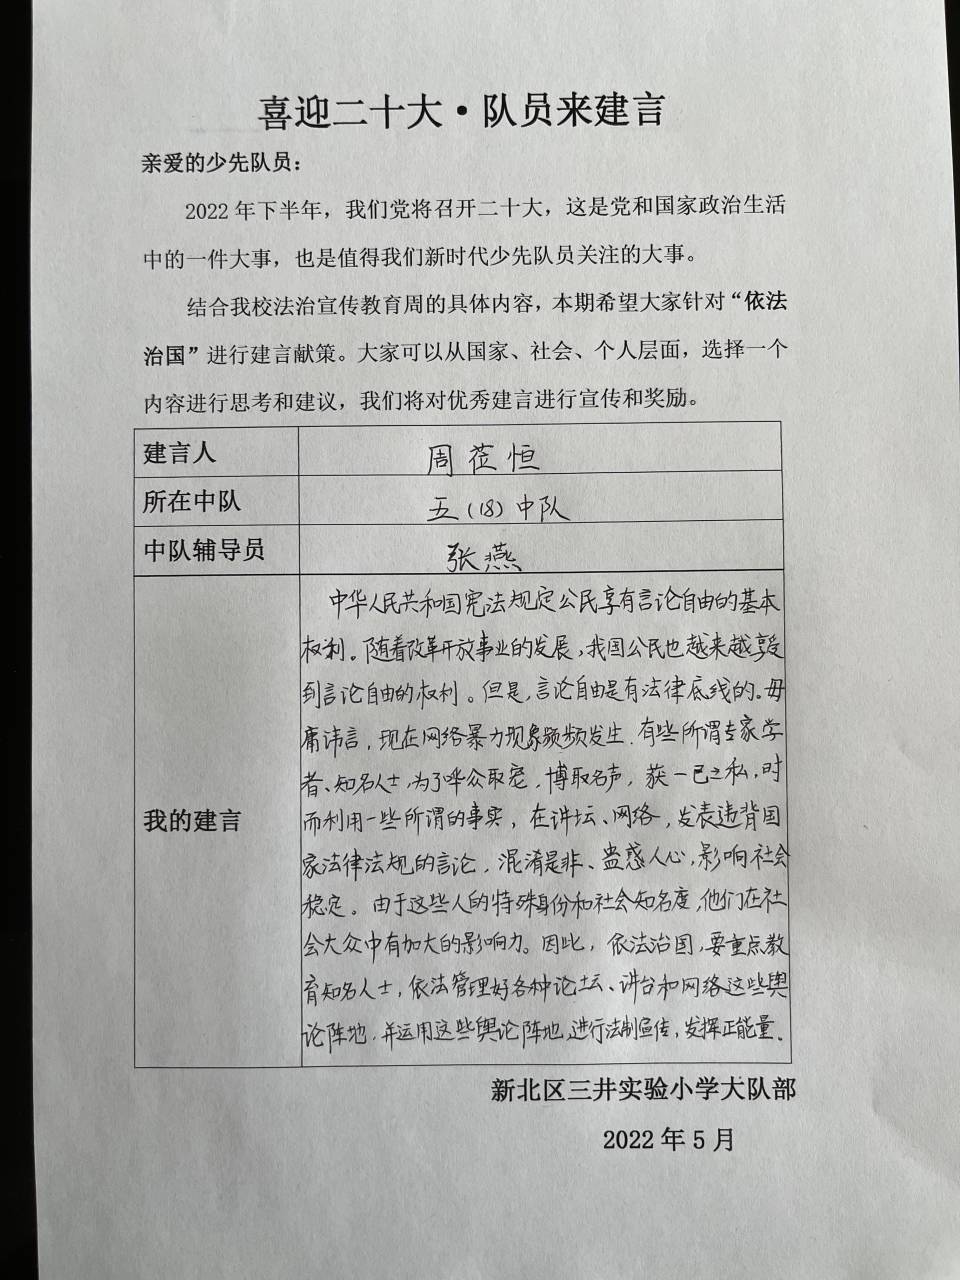 喜迎二十大·队员来建言
亲爱的少先队员：
2022 年下半年，我们党将召开二十大，这是党和国家政治生活
中的一件大事，也是值得我们新时代少先队员关注的大事。
结合我校法治宣传教育周的具体内容，本期希望大家针对“依法
治国”进行建言献策。大家可以从国家、社会、个人层面，选择一个
内容进行思考和建议，我们将对优秀建言进行宣传和奖励。
建言人 周莅恒
所在中队 五（18）中队
中队辅导员 张燕
我的建言
中华人民共和国宪法规定公民享有言论自由的基本
权利。随着改革开放事业的发展，我国公民也越来越享受
到言论自由的权利。但是，言论自由是有法律底线的。毋
庸讳言，现在网络暴力现象频频发生，有些所谓专家学
者、知名人士，为了哗众取宠，博取名声，获一己之私，时
而利用一些所谓的事实，在讲坛、网络，发表违背国
家法律法规的言论，混淆是非、蛊惑人心，影响社会
稳定。由于这些人的特殊身份和社会知名度，他们在社
会大众中有加大的影响力。因此，依法治国，要重点教
育知名人士，依法管理好各种论坛、讲台和网络这些舆
论阵地，并运用这些舆论阵地，进行法制宣传，发挥正能量。
新北区三井实验小学大队部
2022 年 5 月